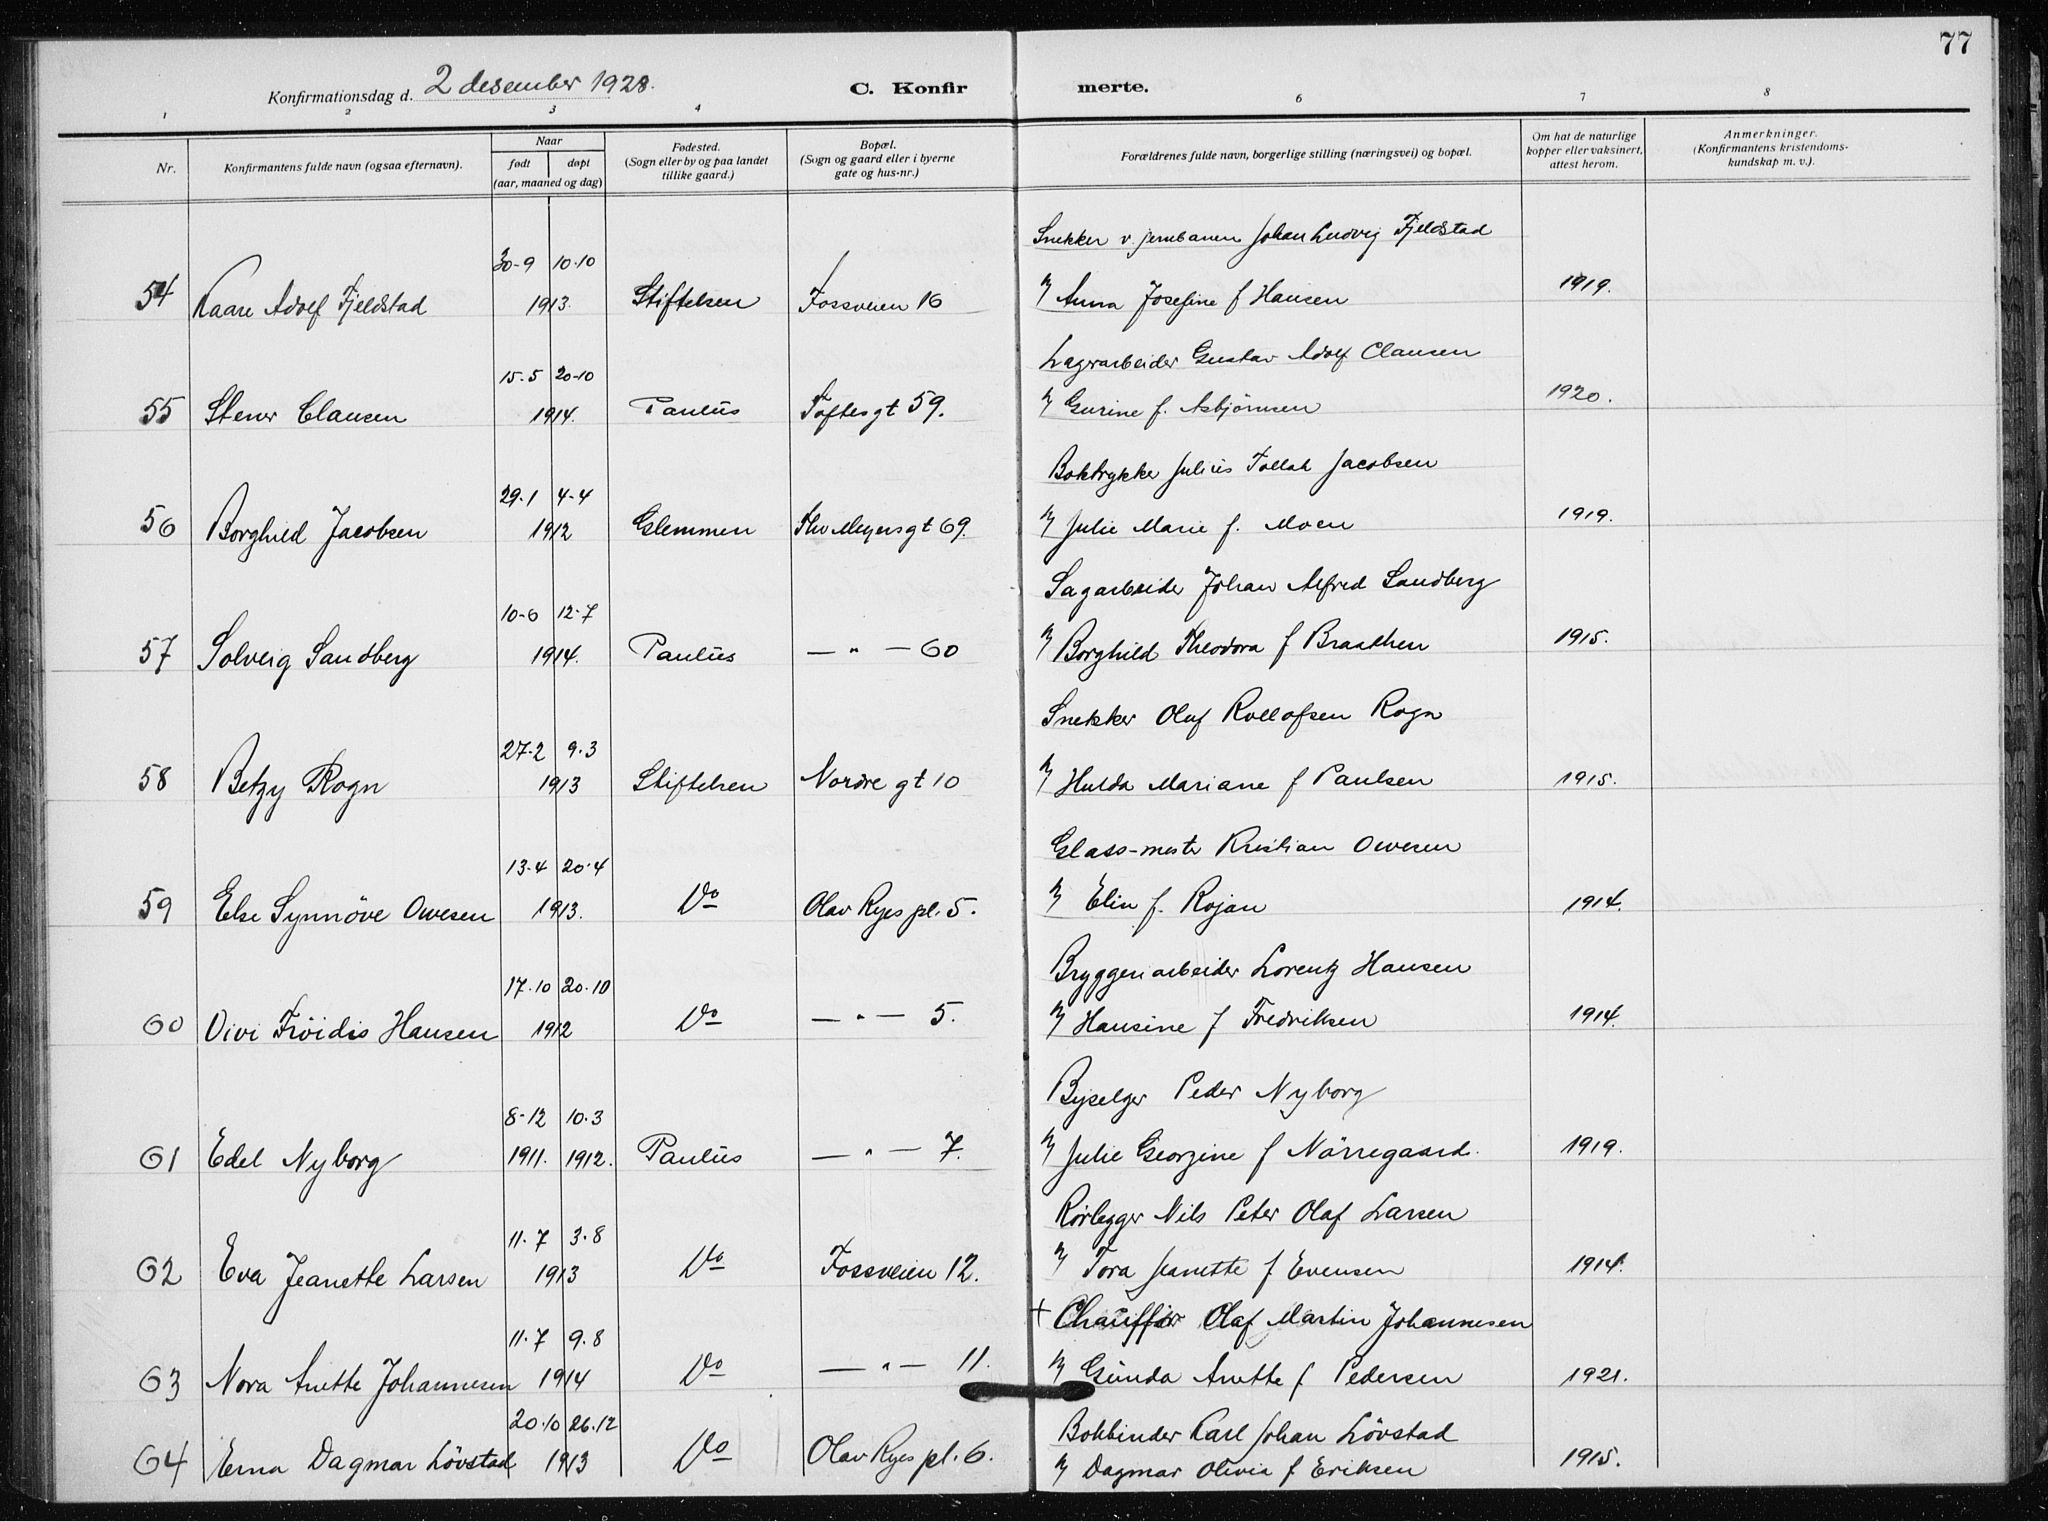 77
Konfirmationsdag d. 2 desember 1928. C. Konfir merte.
1 2 3 4 6 7 8
Nr. Konfirmantens fulde navn (ogsaa efternavn). Naar født døpt (aar, maaned og dag) Fødested. (Sogn eller by og paa landet tillike gaard.) Bopæl. (Sogn og gaard eller i byerne gate og hus-nr.) Forældrenes fulde navn, borgerlige stilling (næringsvei) og bopæl. Om hat de naturlige kopper eller vaksinert, attest herom. Anmerkninger. (Konfirmantens kristendomskundskap m. v.).
Snekker v. jernbanen Johan Ludvig Fjeldstad
30-9 10-10
54 Kaare Adolf Fjeldstad 1913. Stiftelsen Fossveien 16 Anna Josefine f Hansen 1919.
Lagerarbeider Gustav Adolf Clausen
15.5 20-10
55 Stener Clausen 1914. Paulus Toftesgt 59. Gurine f. Asbjörnsen 1920.
Boktrykker Julius Tollak Jacobsen
29.1 4-4
56 Borghild Jacobsen 1912 Glemmen Thv Meyersgt 69. Julie Marie f. Moen 1919.
Sagarbeider Johan Alfred Sandberg
10-6 12-7
57 Solveig Sandberg 1914. Paulus — " — 60 Borghild Theodora f Braathen 1915.
Snekker Olaf Rollofsen Rogn
27-2 9.3
58 Betzy Rogn 1913 Stiftelsen Nordre gt 10 Hulda Mariane f Paulsen 1915.
Glass-mester Kristian Owesen
13.4 20.4
59 Else Synnöve Owesen 1913. Do Olav Ryes pl. 5. Elin f. Rojan 1914.
Bryggeriarbeider Lorentz Hansen
17.10 20.10
60 Vivi Fröidis Hansen 1912 Do — " — 5. Hansine f Fredriksen 1914.
Byselger Peder Nyborg
8-12 10.3
61 Edel Nyborg 1911. 1912. Paulus — " — 7. Julie Georgine f Nörregaard. 1919.
Rörlegger Nils Peter Olaf Larsen
11.7 3.8
62 Eva Jeanette Larsen 1913 Do Fossveien 12. Tora Jeanette f Evensen 1914.
+ Chaufför Olaf Martin Johannesen
11.7 9.8
63 Nora Anette Johannesen 1914 Do — " — 11. Gunda Anette f Pedersen 1921.
20.10 26.12 Bokbinder Karl Johan Lövstad
64 Erna Dagmar Lövstad 1913 Do Olav Ryes pl. 6. Dagmar Olivia f Eriksen 1915.